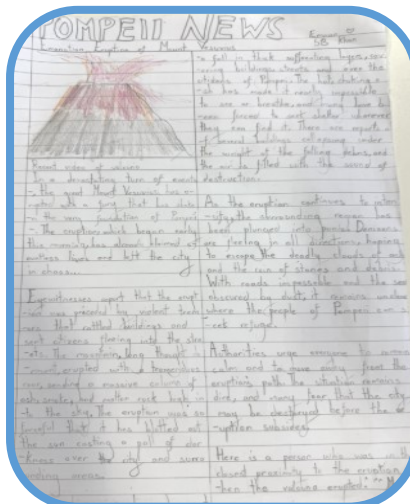 POMPEII NEWS
Eruption of Mount Vesuvius
5B Khan
Recent video of volcano
In a devastating turn of events
, the great Mount Vesuvius has e-
rupted with a fury that has
the very foundation of Pompeii
. The eruption, which began early
this morning, has already
lives and left the city
in chaos...
Eyewitnesses report that the erupt
-ion was preceded by violent
that rattled buildings and
sent citizens fleeing into the
The mountain, long thought
erupted with a tremendous
sending a massive column of
ash, smoke, and molten rock high in
-to the sky. The eruption was so
forceful that it has blotted out
the sun casting a pall of dar
-kness over the city and surro
unding areas.
to fall in thick suffocating layers, cov-
ering buildings, streets and even the
of Pompeii. The
has made it nearly impossible
to see or breathe, and many have
been forced to seek shelter wherever
they can find it. There are reports
of several buildings collapsing under
the weight of the falling debris, and
the air is filled with the sound of
destruction.
As the eruption continues to
the surrounding region has
been plunged into panic.
are fleeing in all directions, hoping
to escape the deadly clouds of ash
and the rain of stones and debris.
With roads impassable and the
obscured by dust, it remains unclear
where the people of Pompeii can s
-eek refuge.
Authorities urge everyone to remain
calm and to move away from the
eruption's path. The situation remains
dire, and many fear that the city
may be destroyed before the er
-uption subsides.
Here is a person who was in the
closed proximity to the eruption
when the volcano erupted: